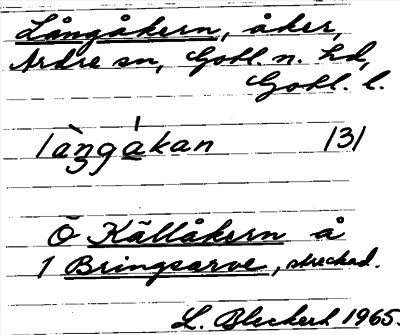 Långåkern, åker,
Ardre sn, Gotl. n. hd,
Gotl. l.
làngåkan /3/
Ö Källåkern å
1 Bringsarve, streckad.
L. Bleckert 1965.